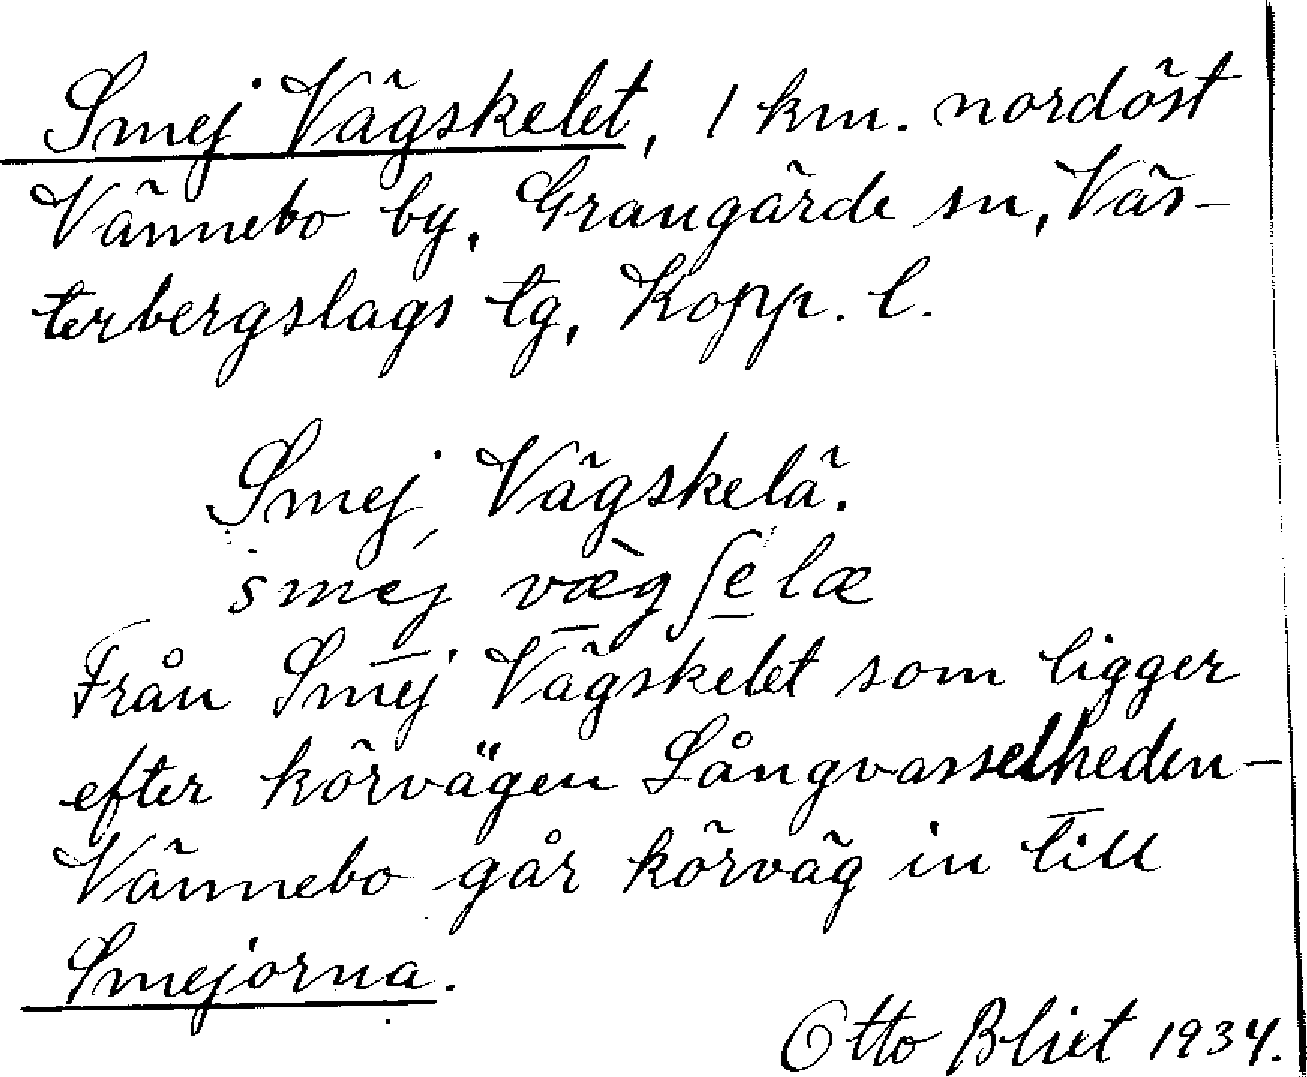 Smej Vägskelet, 1 km. nordöst
Vännebo by, Grangärde sn, Väs-
terbergslags tg, Kopp. l.
Smej Vägskelä.
smej væ̀gʃelæ
Från Smej Vägskelet som ligger
efter körvägen Långvasselheden-
Vännebo går körväg in till
Smejorna.
Otto Bliet 1934.